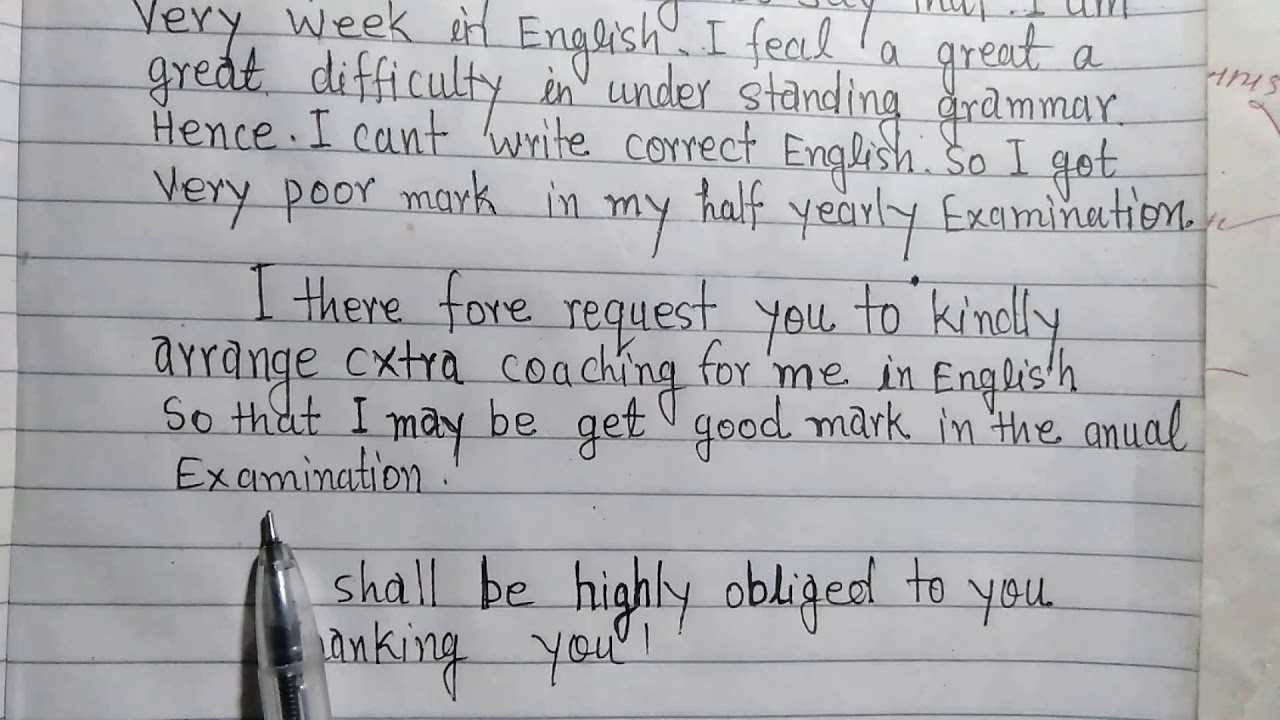 say that. I am
Very week in English. I feal a great a
great difficulty in under standing grammar.
Hence. I cant write correct English. So I got
Very poor mark in my half yearly Examination.
I there fore request you to kindly
arrange extra coaching for me in English
So that I may be get good mark in the anual
Examination.
shall be highly obliged to you
anking you!